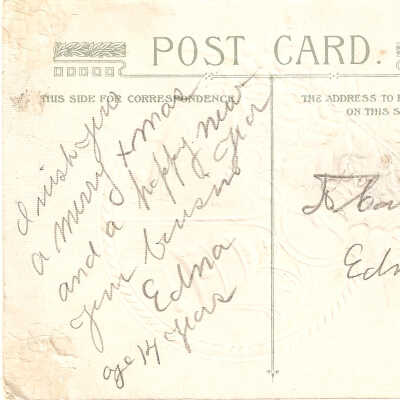 POST CARD.
THIS SIDE FOR CORRESPONDENCE
THE ADDRESS TO
ON THIS S
I wish you
a merry xmas
and a happy new
year
Your Cousin
Edna
age 14 years
To
Edn